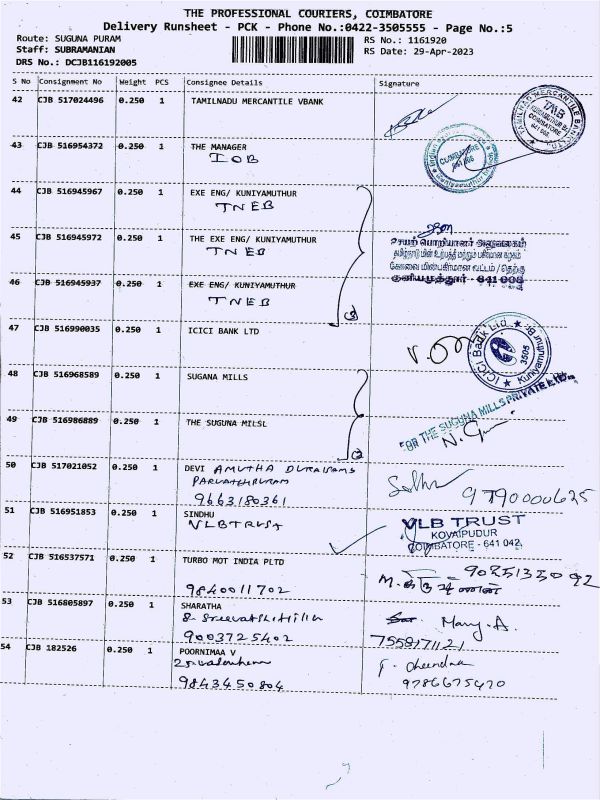 THE PROFESSIONAL COURIERS, COIMBATORE
Delivery Runsheet - PCK - Phone No.:0422-3505555 - Page No.:5
Route: SUGUNA PURAM
RS No.: 1161920
Staff: SUBRAMANIAN
RS Date: 29-Apr-2023
DRS No.: DCJB116192005
S No Consignment No Weight PCS Consignee Details Signature
42 CJB 517024496 0.250 1 TAMILNADU MERCANTILE VBANK
TAMILNAD MERCANTILE BANK LTD
TMB
COIMBATORE
43 CJB 516954372 0.250 1 THE MANAGER
IOB
COIMBATORE
44 CJB 516945967 0.250 1 EXE ENG/ KUNIYAMUTHUR
TNEB
45 CJB 516945972 0.250 1 THE EXE ENG/ KUNIYAMUTHUR
TNEB
செயற் பொறியாளர் அலுவலகம்
தமிழ்நாடு மின் உற்பத்தி மற்றும் பகிர்மான கழகம்
கோவை மின்பகிர்மான வட்டம் / தெற்கு
குனியமுத்தூர் - 641 008
46 CJB 516945937 0.250 1 EXE ENG/ KUNIYAMUTHUR
TNEB
3
47 CJB 516990035 0.250 1 ICICI BANK LTD
ICICI Bank Ltd.
3505
Kuniyamuthur
48 CJB 516968589 0.250 1 SUGANA MILLS
FOR THE SUGUNA MILLS PRIVATE LTD.,
49 CJB 516986889 0.250 1 THE SUGUNA MILSL
2
50 CJB 517021052 0.250 1 DEVI AMUTHA DURAIRAMS
9663180361
9790000625
51 CJB 516951853 0.250 1 SINDHU
VLBTRUST
VLB TRUST
KOVAIPUDUR
COIMBATORE - 641 042
52 CJB 516537571 0.250 1 TURBO MOT INDIA PLTD
9840011702
9025135092
53 CJB 516805897 0.250 1 SHARATHA
9003725402
Mary. A.
7558171121
54 CJB 182526 0.250 1 POORNIMAA V
9843450804
9786675470